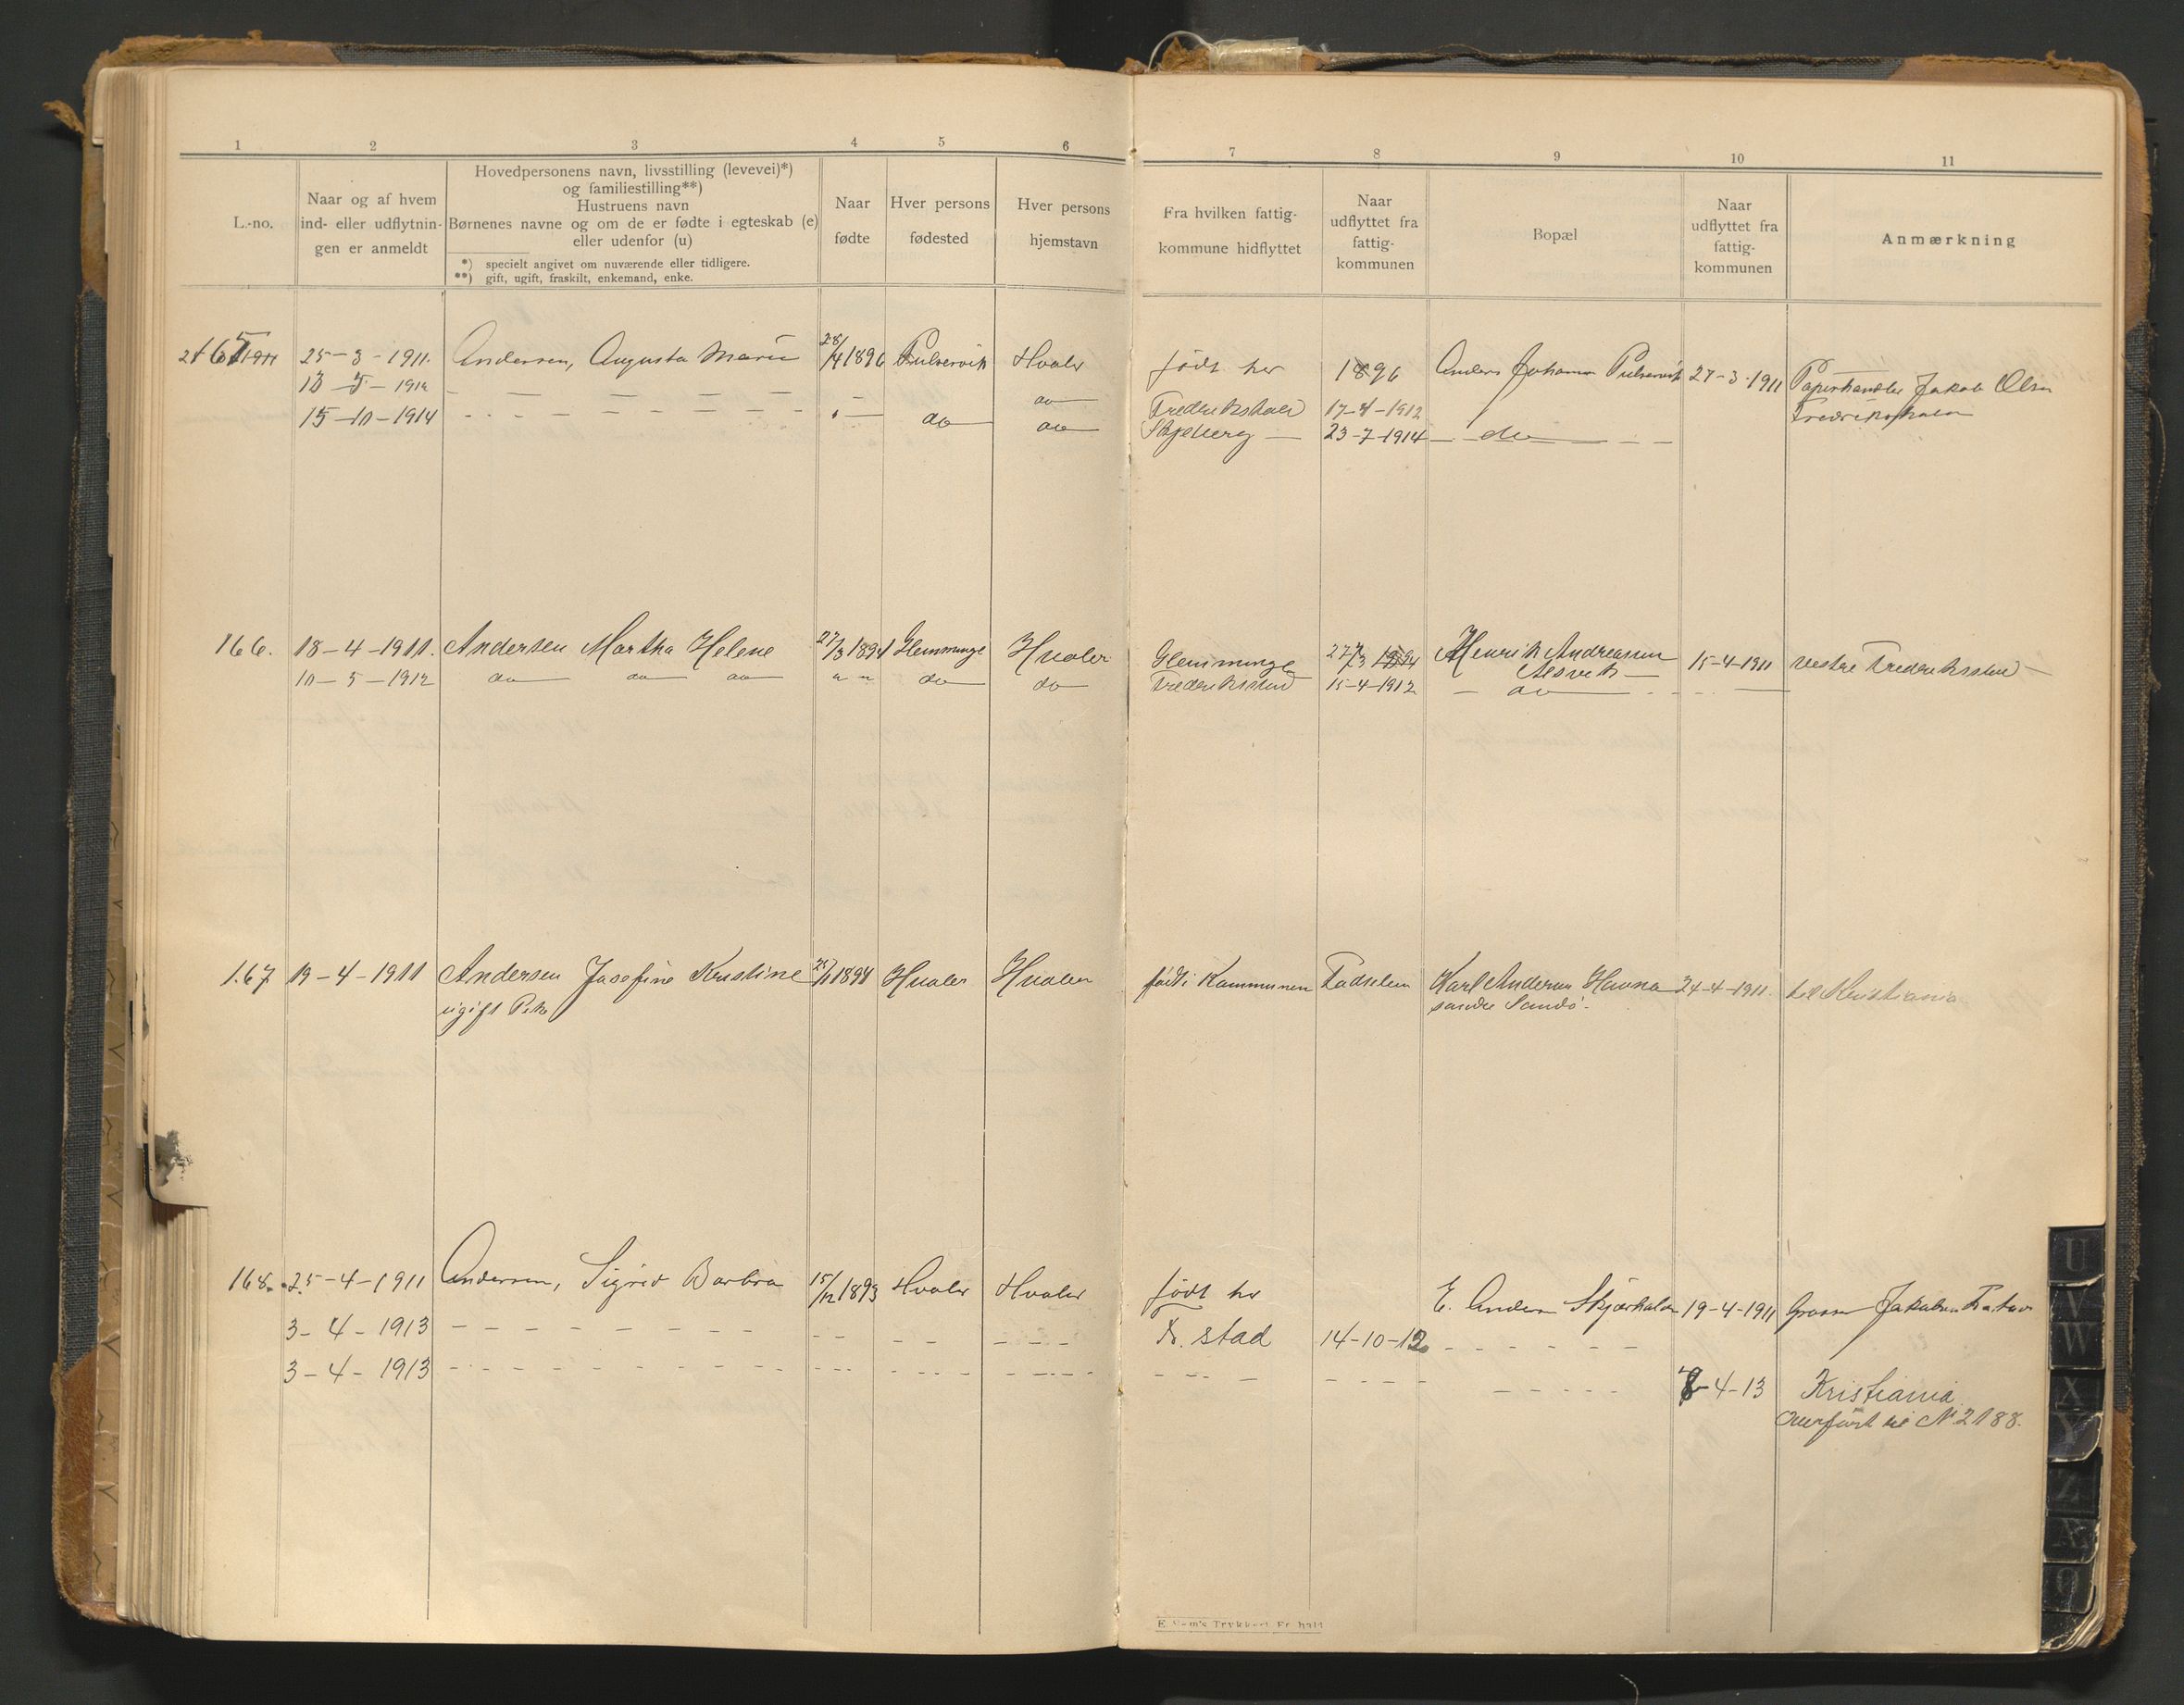 1 2 3 4 5 6 7 8 9 10 11
L.-no.
Naar og af hvem
ind- eller udflytnin-
gen er anmeldt
Hovedpersonens navn, livsstilling (levevei)*)
og familiestilling**)
Hustruens navn
Børnenes navne og om de er fødte i egteskab (e)
eller udenfor (u)
*) specielt angivet om nuværende eller tidligere.
**) gift, ugift, fraskilt, enkemand, enke.
Naar
fødte
Hver persons
fødested
Hver persons
hjemstavn
Fra hvilken fattig-
kommune hidflyttet
Naar
udflyttet fra
fattig-
kommunen
Bopæl
Naar
udflyttet fra
fattig-
kommunen
Anmærkning
165 25-3-1911. Andersen, Augusta Marie 28/4 1896 Pulservik Hvaler født her 1896 Anders Johansen Pulservik 27-3-1911 Papirhandler Jakob Olsen
13-5-1912 — — — — — do Frederikshald 17-4-1912 Fredrikshald
15-10-1914 — — — — — do do Skjeberg — 23-7-1914 — do —
166. 18-4-1911. Andersen Martha Helene 27/3 1894 Glemminge Hvaler Glemminge 27/3 1894 Henrik Andreassen 15-4-1911 vestre Frederiksstad
Alsvik —
10-5-1912 do do do " " do do Frederiksstad 15-4-1912 — do —
167 19-4-1911 Andersen Josefine Kristine 1894 Hvaler Hvaler født i Kommunen Fødselen Karl Andersen Havna 24-4-1911. til Kristiania
ugift Pike søndre Sandø.
168. 25-4-1911 Andersen, Sigrid Barbra 15/12 1893 Hvaler Hvaler født her E. Andersen Skjærhalen 19-4-1911 Jakobsen
3-4-1913 — — — — — Fr. stad 14-10-12 — — —
3-4-1913 — — — — — 8-4-13 Kristiania
Overført til No 2188.
E. Sem's Trykkeri Fr.hald
U
V
W
X
Y
Z
Æ
Ø